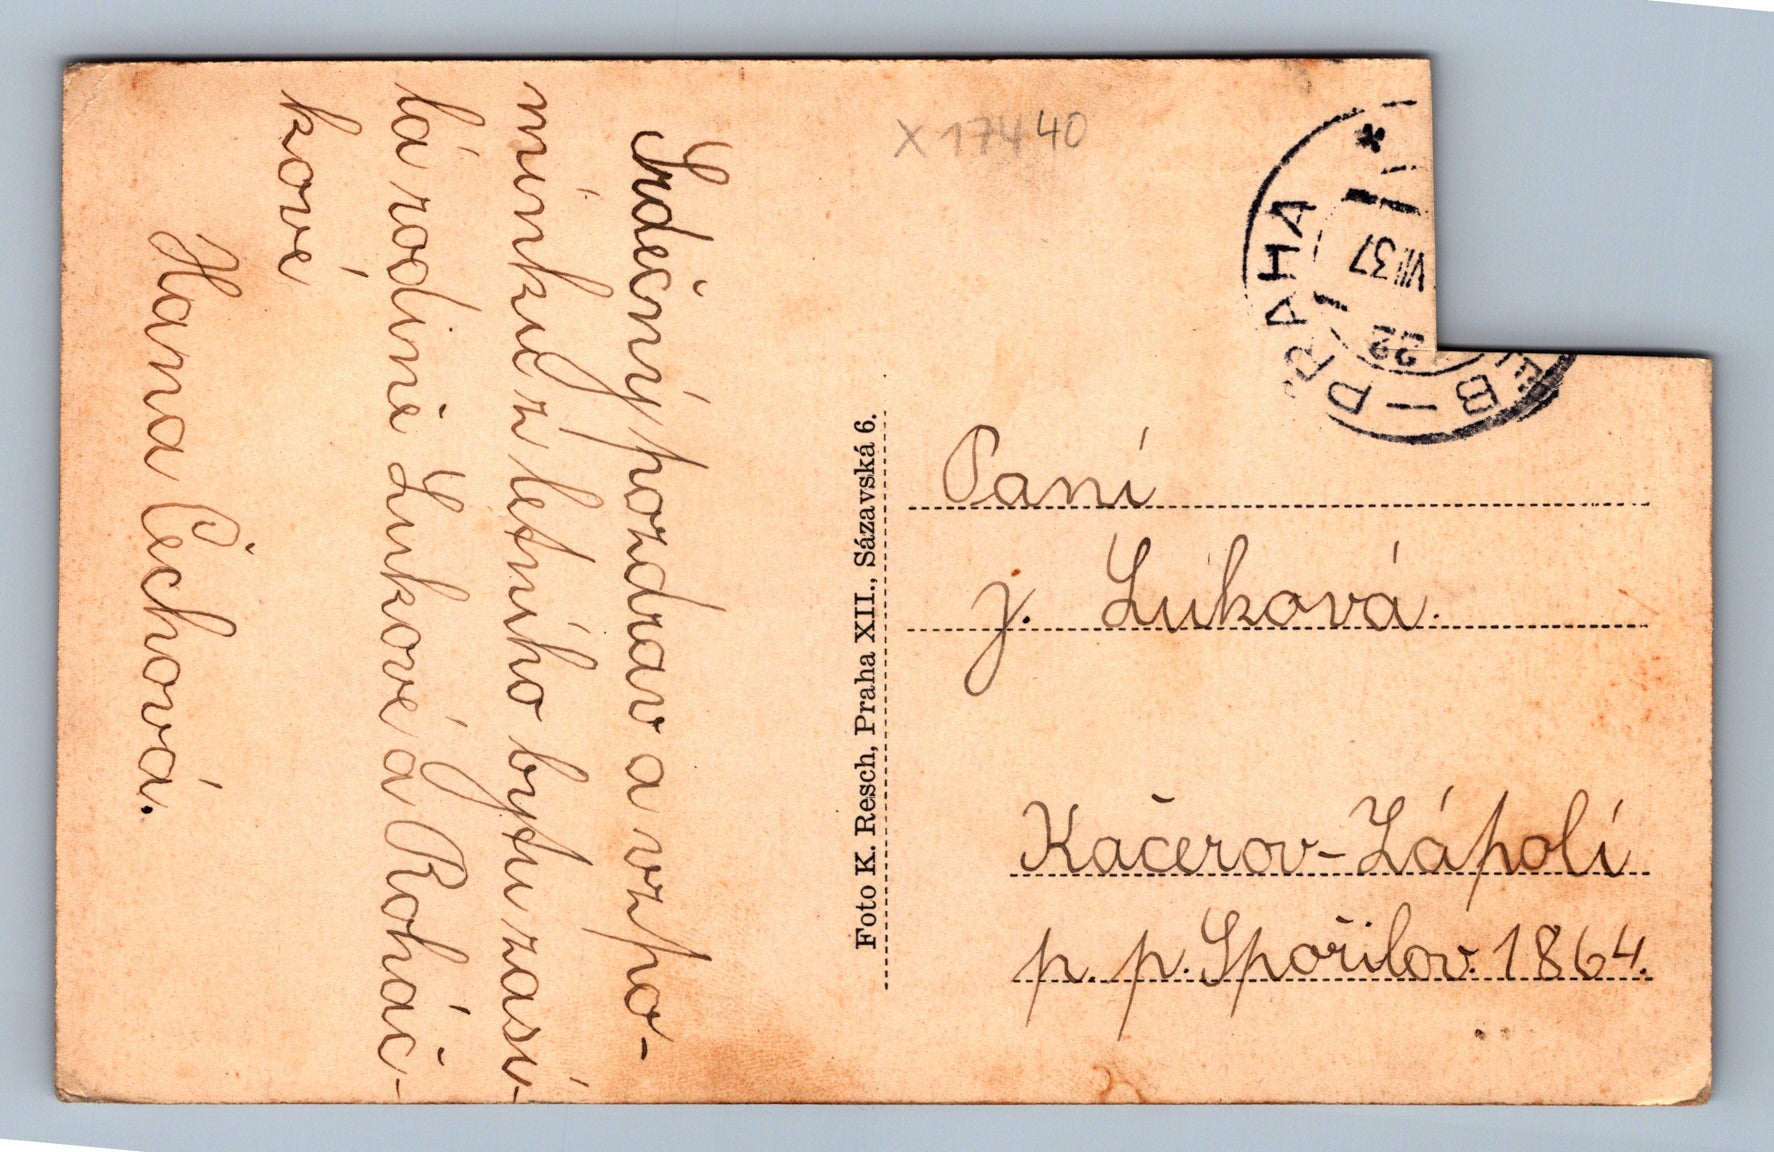 Srdečný pozdrav a vzpo-
mínku z letního bytu zasí-
lá rodině Lukové a Roháč-
kové
Hana Čechová.
Foto K. Resch, Praha XII., Sázavská 6.
X 17440
PRAHA
22
VIII 37
B
Paní
J. Luková.
Kačerov-Zápolí
p. p. Spořilov. 1864.